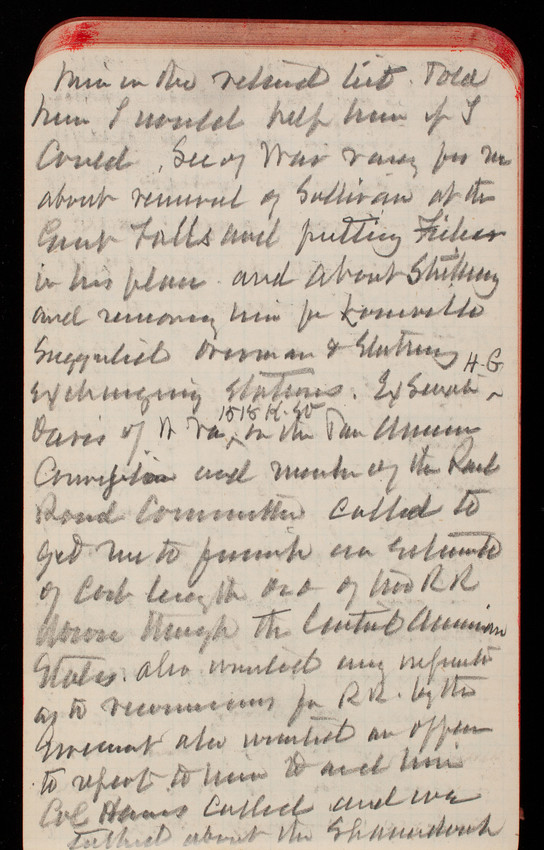 him on the retired list. Told
him I would help him if I
Could. Sec of War rang for me
about removal of Sullivan at the
Great Falls and putting Fisher
in his place and about Stickney
and removing him for Louisville
Suggested Overman & Stickney
exchanging stations. Ex Senator H. G
Davis of W Va, 1515 K. St on the Pan American
Commission and member of the Rail
Road Committee called to
get me to furnish an estimate
of Cost length &c of the RR
down through the Central American
States. also wanted any information
as to reconnaissance for RR. by the
Government also wanted an officer
to report to him to aid him
Col called and we
talked about the Shenandoah